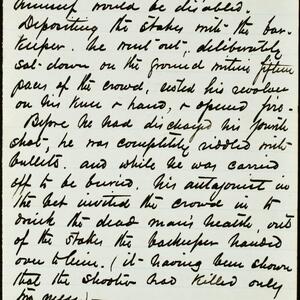 himself would be disabled.
Depositing the stakes with the bar-
keeper. he went out, deliberately
sat down on the ground within fifteen
paces of the crowd, rested his revolver
on his knee & hand, & opened fire.
Before he had discharged his fourth
shot, he was completely riddled with
bullets. and while he was carried
off to be buried. his antagonist in
the bet invited the crowd in to
drink the dead man's health, out
of the stakes the barkeeper handed
over to him. (it having been shown
that the shooter had killed only
two men)